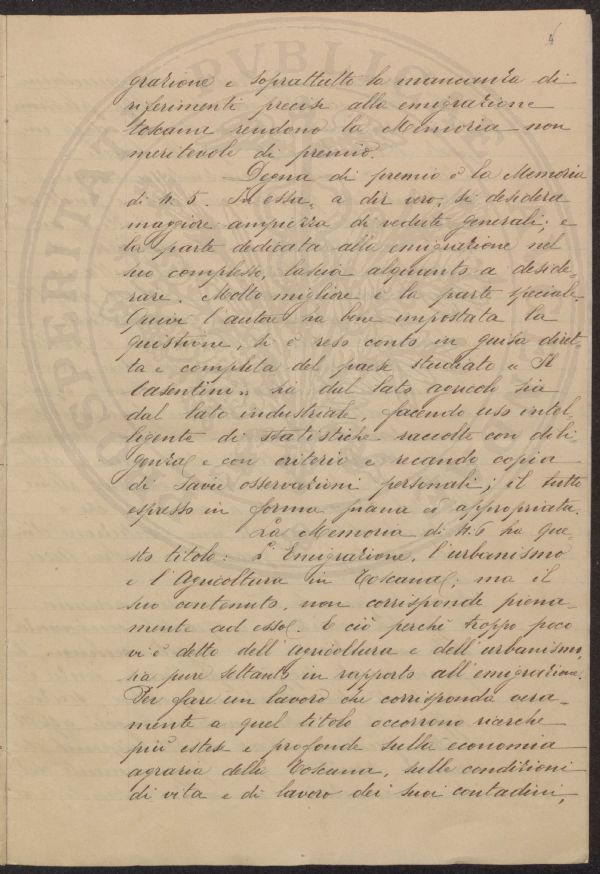 4
grazione e soprattutto la mancanza di
riferimenti precisi alla emigrazione
toscana rendono la Memoria non
meritevole di premio.
Degna di premio è la Memoria
di N. 5. In essa, a dir vero, si desidera
maggiore ampiezza di vedute generali; e
la parte dedicata alla emigrazione nel
suo complesso, lascia alquanto a deside-
rare. Molto migliore è la parte speciale.
Quivi l'autore ha bene impostata la
questione, si è reso conto in guisa diret-
ta e completa del paese studiato "Il
Casentino" sia dal lato agricolo sia
dal lato industriale, facendo uso intel-
ligente di statistiche raccolte con dili-
genza e con criterio e recando copia
di savie osservazioni personali; il tutto
espresso in forma piana ed appropriata.
La Memoria di N. 6 ha que-
sto titolo: L'Emigrazione, l'urbanismo
e l'Agricoltura in Toscana; ma il
suo contenuto, non corrisponde piena-
mente ad esso. E ciò perchè troppo poco
vi è detto dell'agricoltura e dell'urbanismo,
sia pure soltanto in rapporto all'emigrazione.
Per fare un lavoro che corrisponda vera-
mente a quel titolo occorrono ricerche
più estese e profonde sulla economia
agraria della Toscana, sulle condizioni
di vita e di lavoro dei suoi contadini,